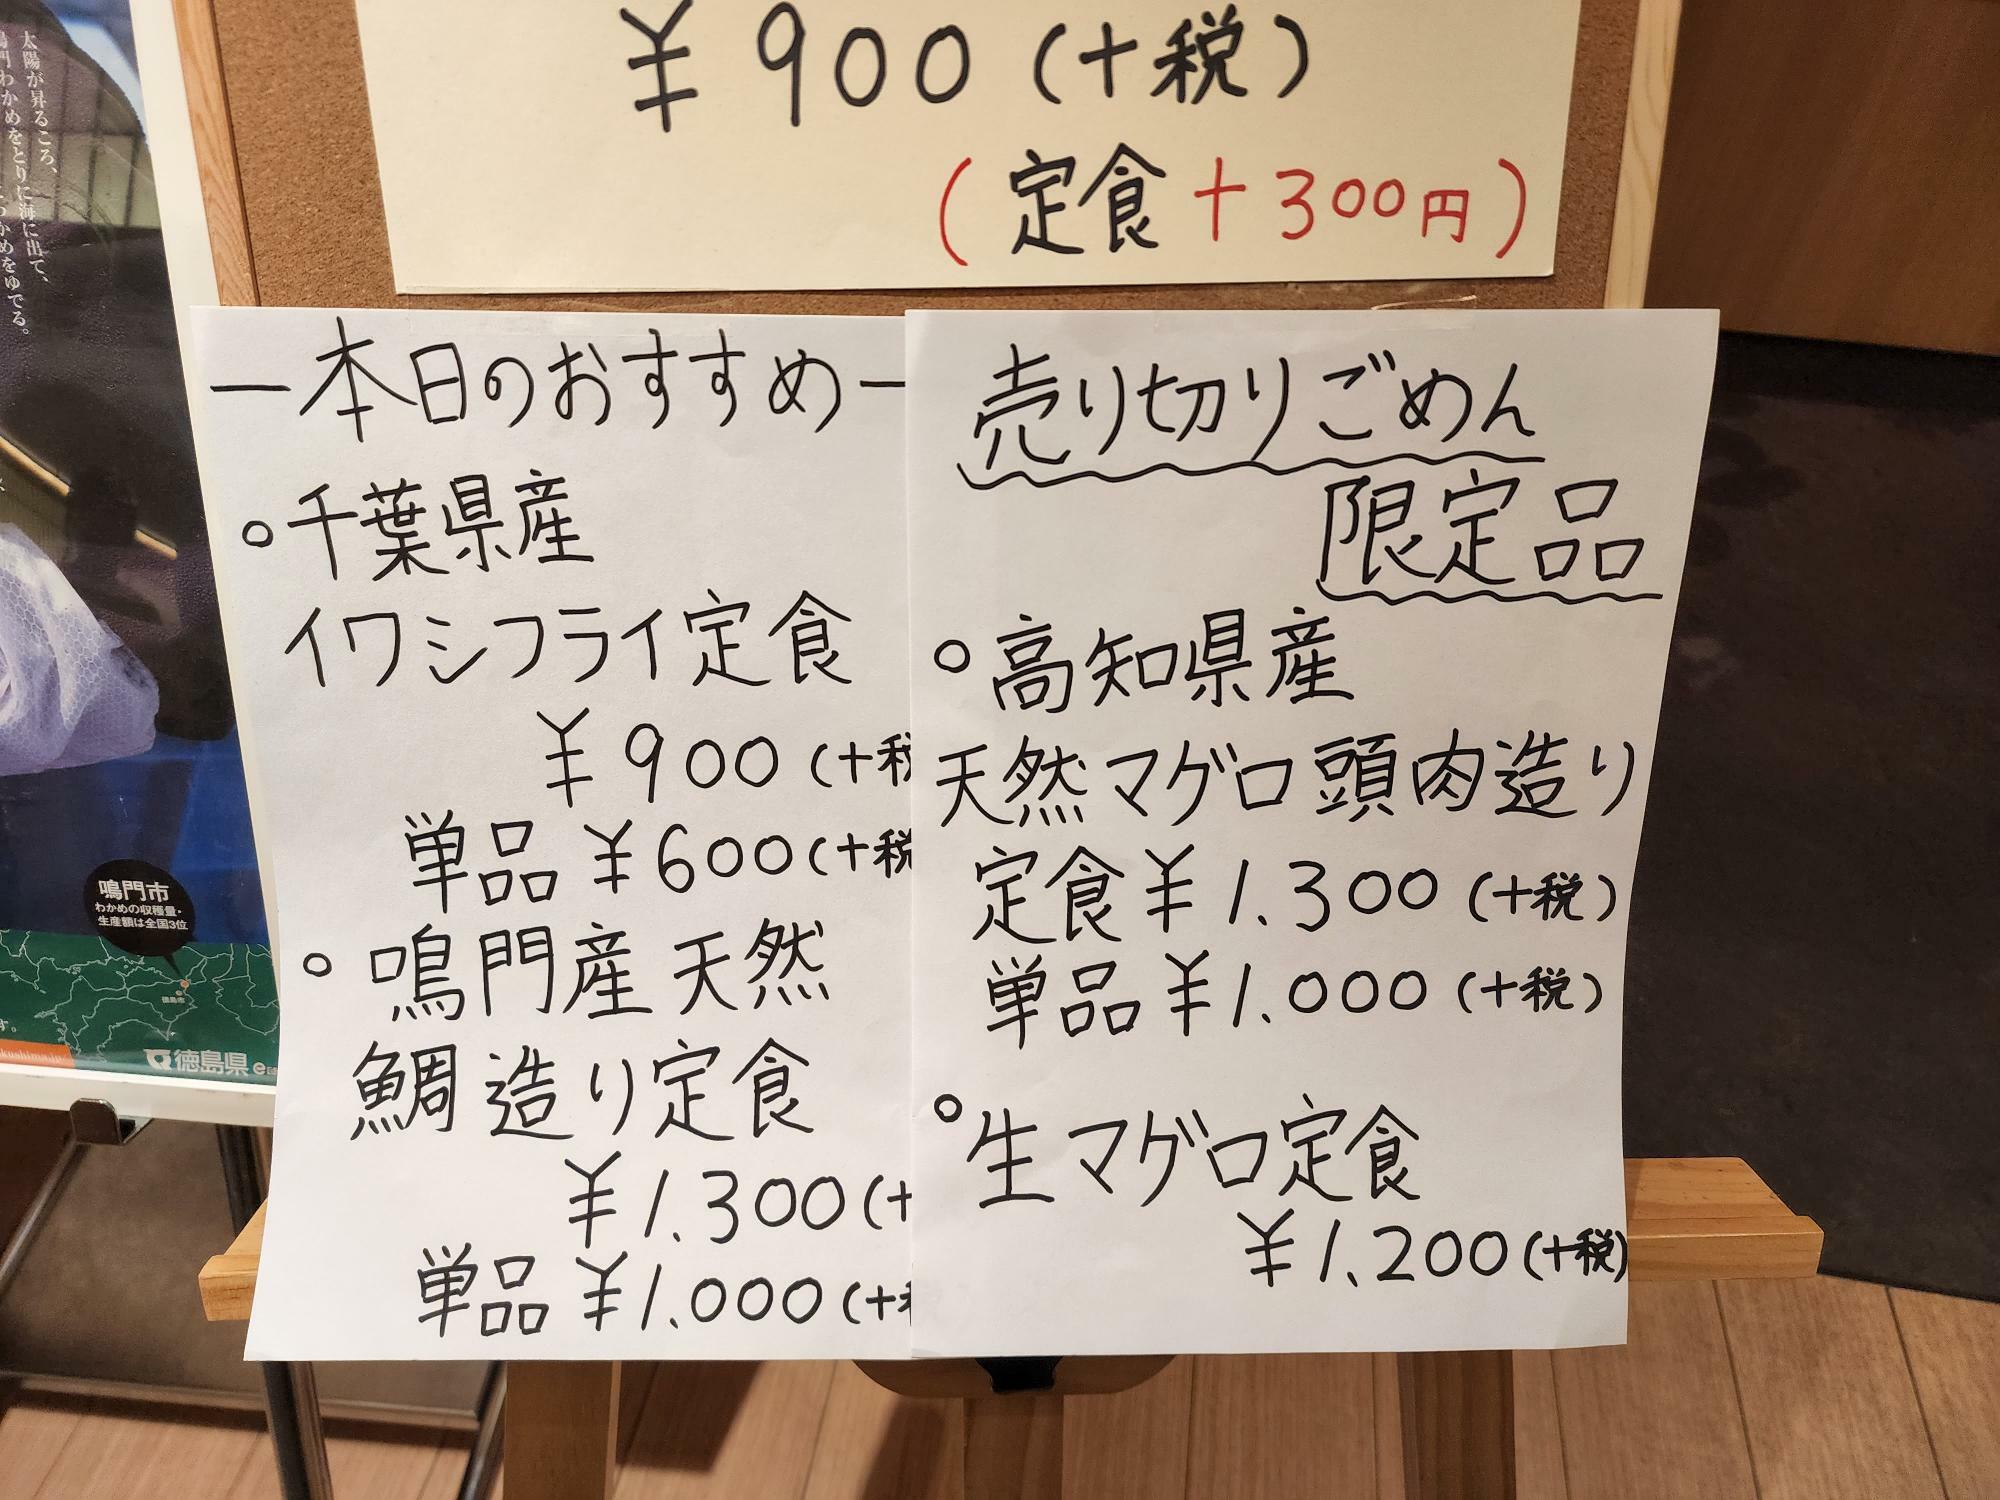 ¥900(+税)
(定食+300円)
ー本日のおすすめー
○千葉県産
イワシフライ定食
¥900(+税
単品¥600(+税
○鳴門産天然
鯛造り定食
¥1.300(+
単品¥1.000(+
売り切りごめん
限定品
○高知県産
天然マグロ頭肉造り
定食¥1.300(+税)
単品¥1.000(+税)
○生マグロ定食
¥1.200(+税)
太陽が昇るころ、
鳴門わかめをとりに海に出て、
かめをゆでる。
鳴門市
わかめの収穫量・
生産額は全国3位
徳島市
す。
徳島県